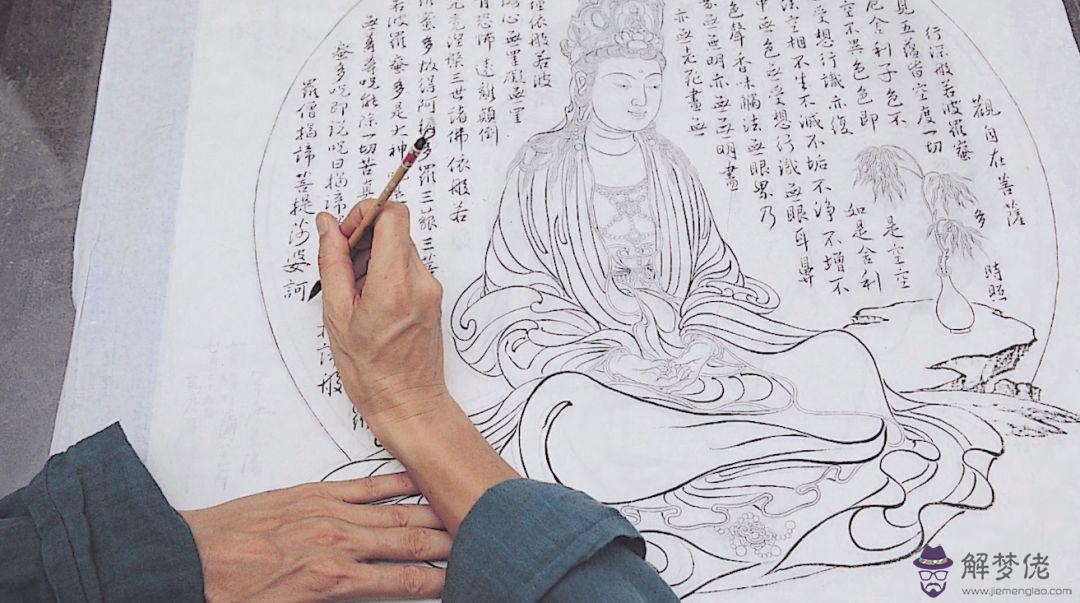 觀自在菩薩
行深般若波羅蜜
多
時照
見五蘊皆空度一切
厄舍利子色不
空不異色色即
是空空
受想行識亦復
如是舍利
法空相不生不滅不垢不净不增不
中無色無受想行識無眼耳鼻
色聲香味觸法無眼界乃
無無明亦無無明盡
亦無老死盡無
埵依般若波
心無罣礙無罣
有恐怖遠離顛倒
究竟涅槃三世諸佛依般若
羅蜜多故得阿耨多羅三藐三菩
若波羅蜜多是大神
無等等呪能除一切苦真
蜜多呪即説呪曰揭諦
羅僧揭諦菩提薩婆訶
解梦佬
www.jiemenglao.com